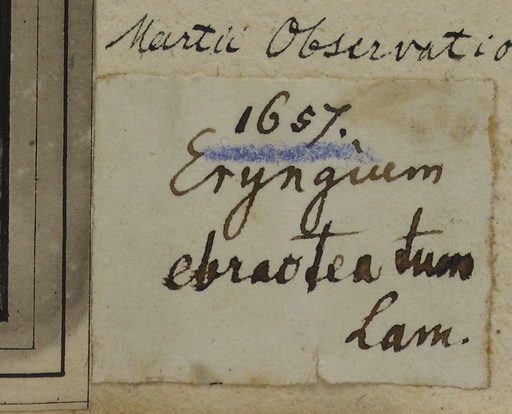 Martii Observatio
1657.
Eryngium
ebracteatum
Lam.